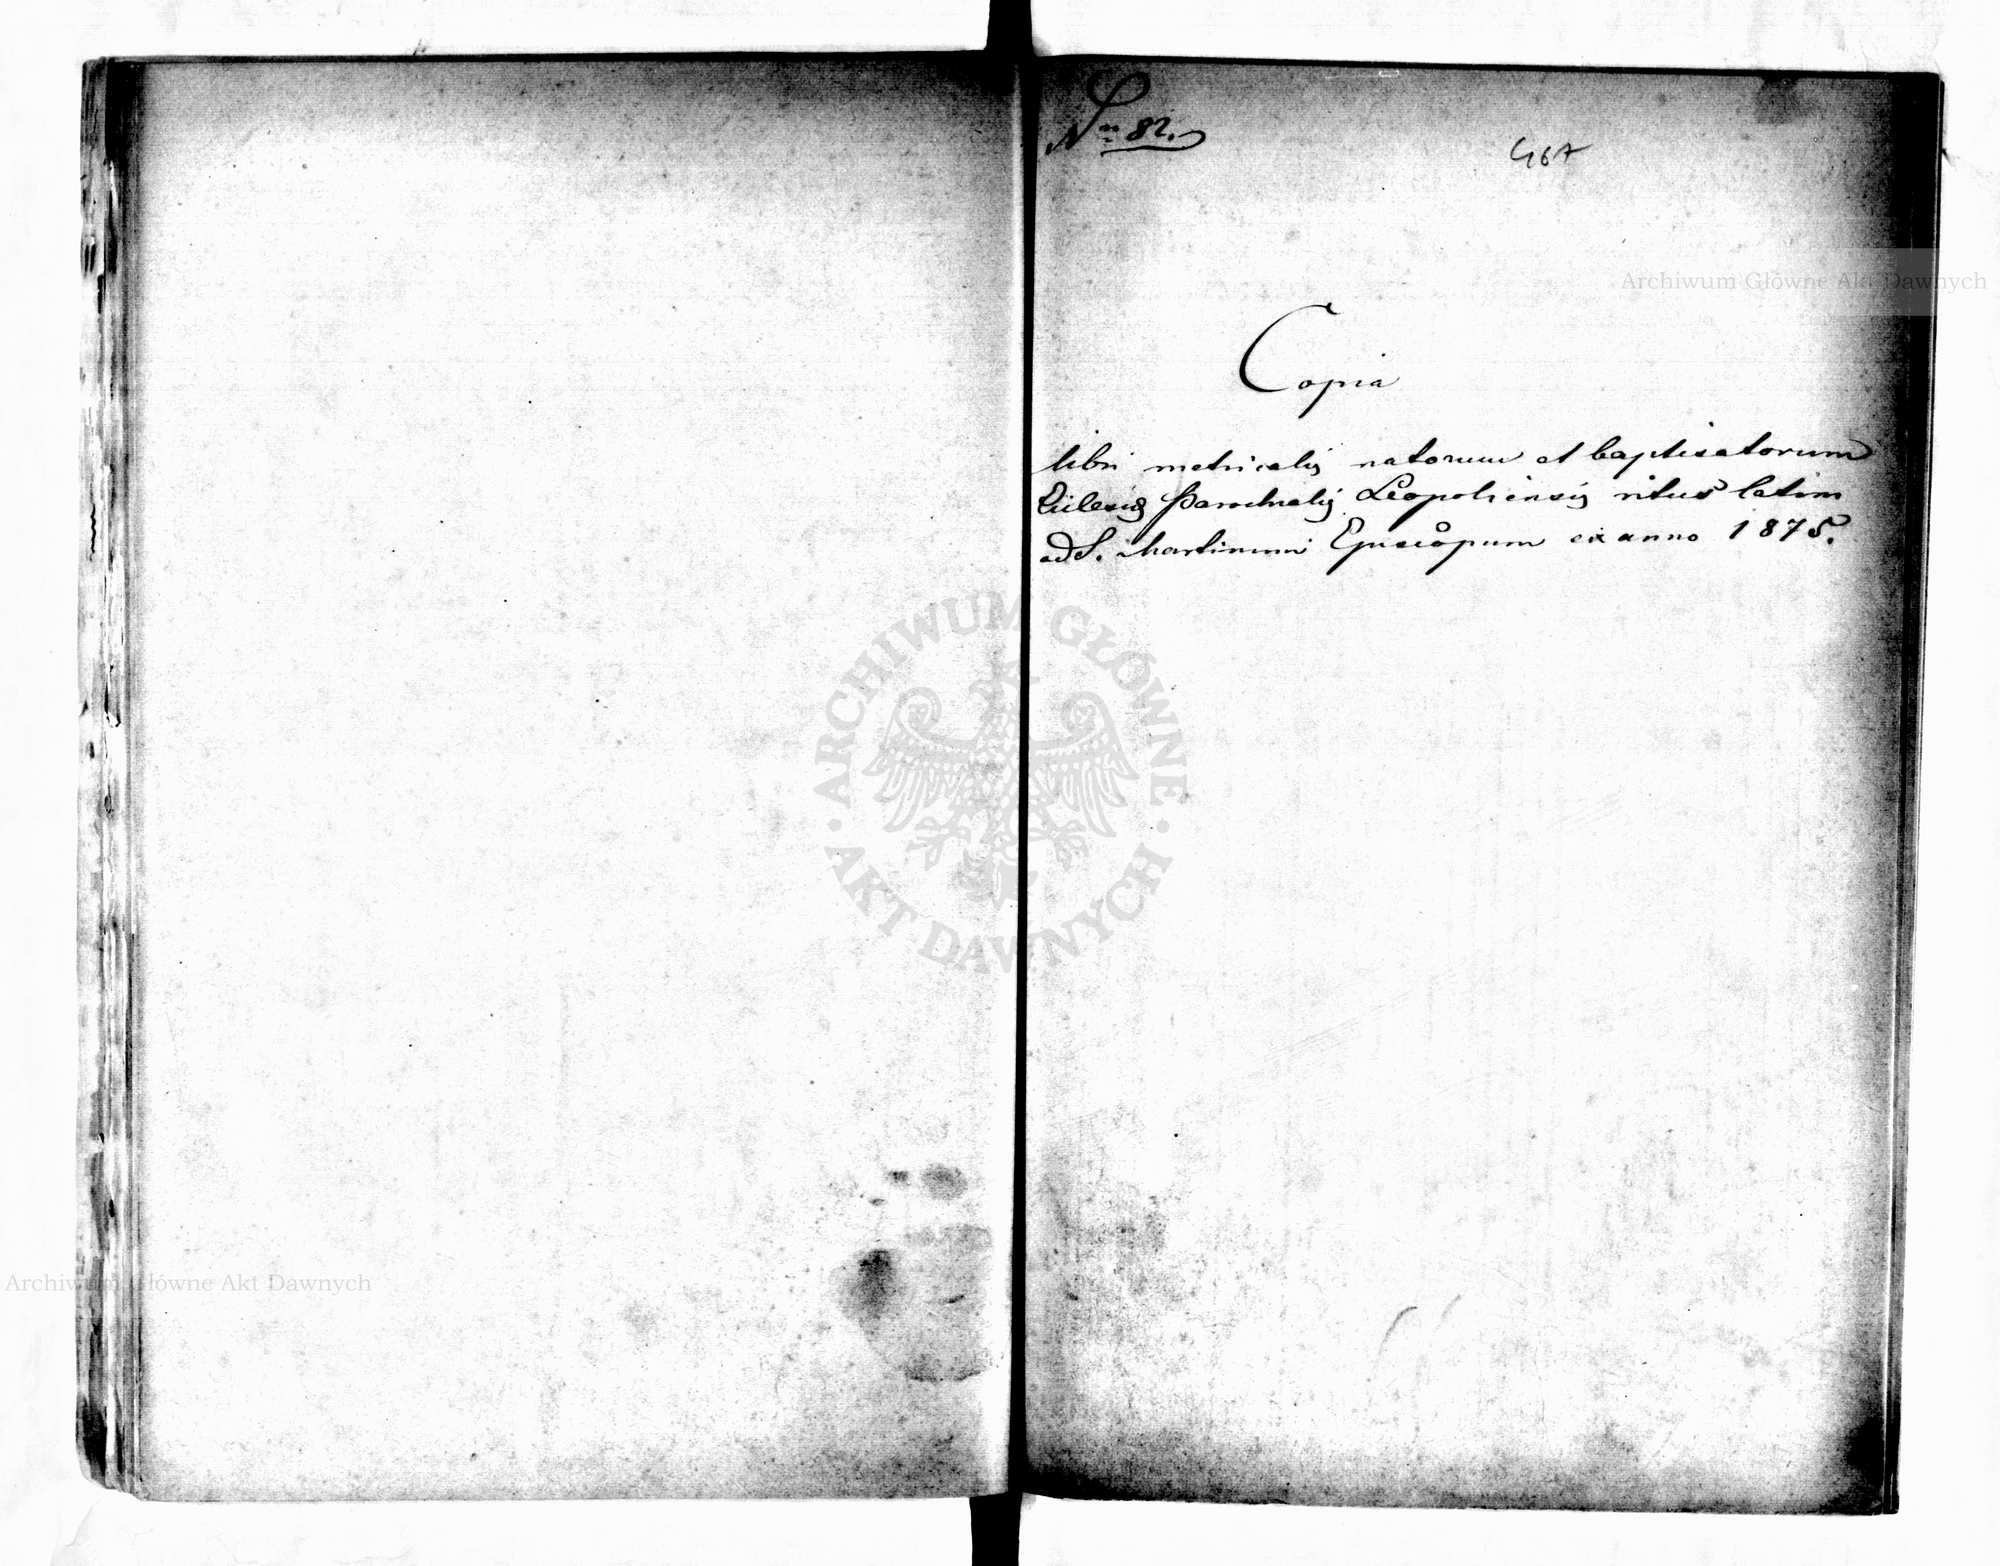 Nro 82.
467
Copia
libri metricalis natorum et baptisatorum
Ecclesiæ Parochialis Leopoliensis ritus latini
ad S. Martinum Episcopum ex anno 1875.
Archiwum Główne Akt Dawnych
ARCHIWUM GŁÓWNE
AKT DAWNYCH
Archiwum Główne Akt Dawnych